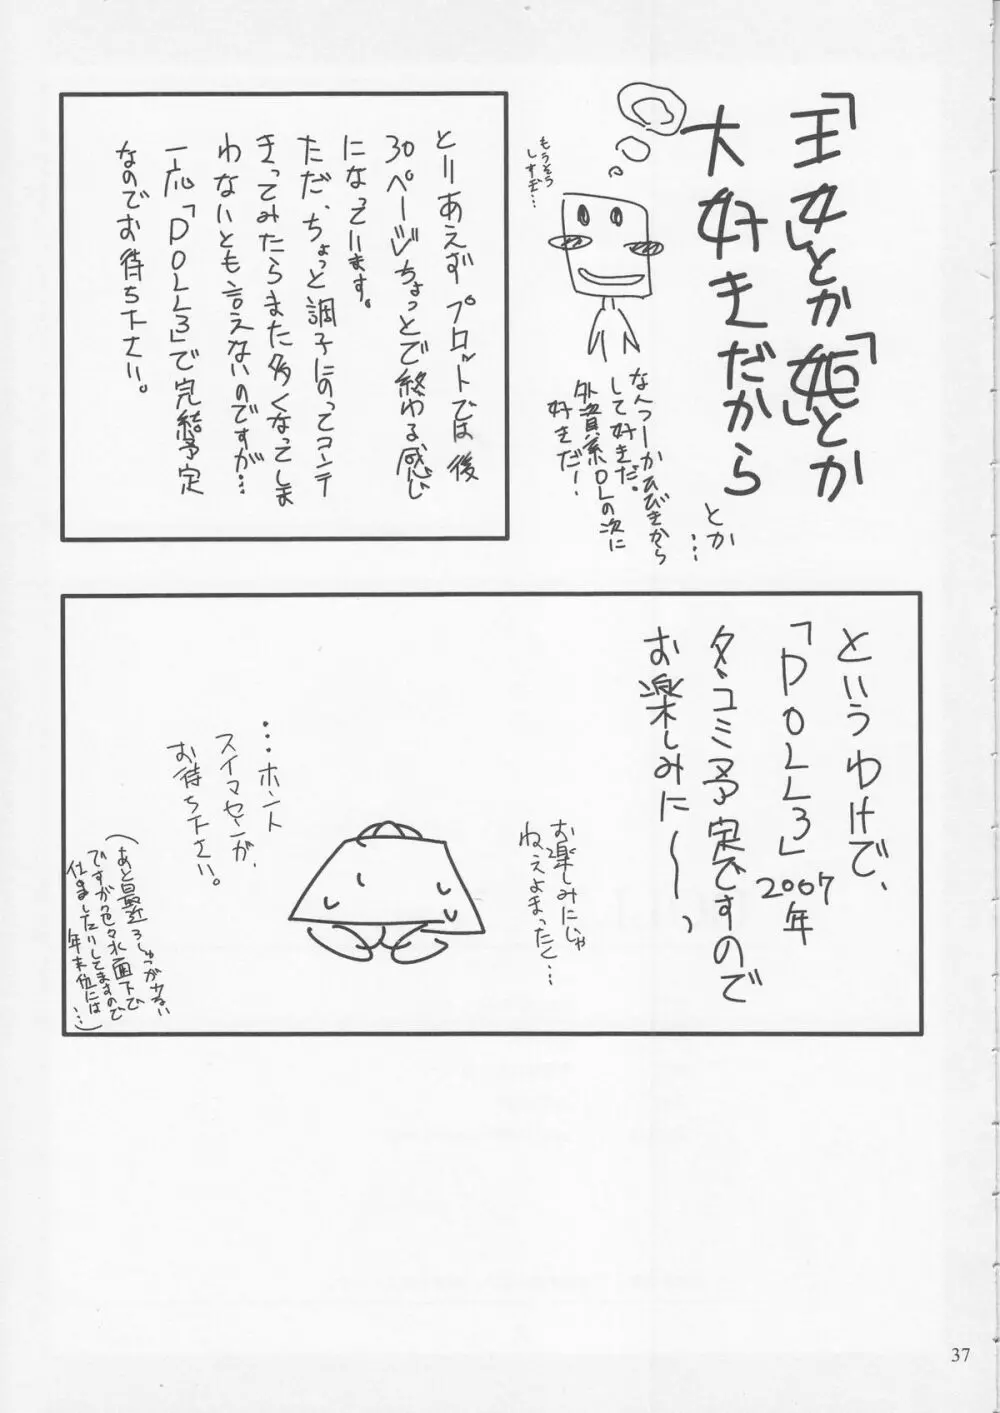 「王女」とか「姫」とか
大好きだから
とか
…
もうそう
しすぎ…
なんつーかひびきから
して好きだ。
外資系OLの次に
好きだー。
とりあえずプロットでは後
30ページちょっとで終わる感じ
になっています。
ただ、ちょっと調子にのってコンテ
きってみたらまた多くなってしま
わないとも言えないのですが…
一応「DOLL3」で完結予定
なのでお待ち下さい。
というわけで、
「DOLL3」2007年
冬コミ予定ですので
お楽しみに〜っ
お楽しみにじゃ
ねえよまったく…
…ホント
スイマセンが、
お待ち下さい。
(あと最近ろしゅつが少ない
ですが色々水面下で
仕込ましたりしてますので
年末位には
…)
37